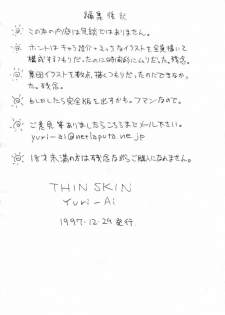 編集後記
この本の内容は冗談ではありません。
ホントはキャラ紹介コミックなイラストを全員描いて
構成するつもりだったのに時間的にムリだった。残念。
裏面イラストを数点、描くつもりだったのできなかっ
た。残念。
もしかしたら完全版を出すかも。フマンなので。
ご意見等ありましたらこちらまでメール下さい。
yuri-ai@netlaputa.ne.jp
18才未満の方は残念ながらご購入になれません。
THIN SKIN
Yuri-Ai
1997.12.29発行